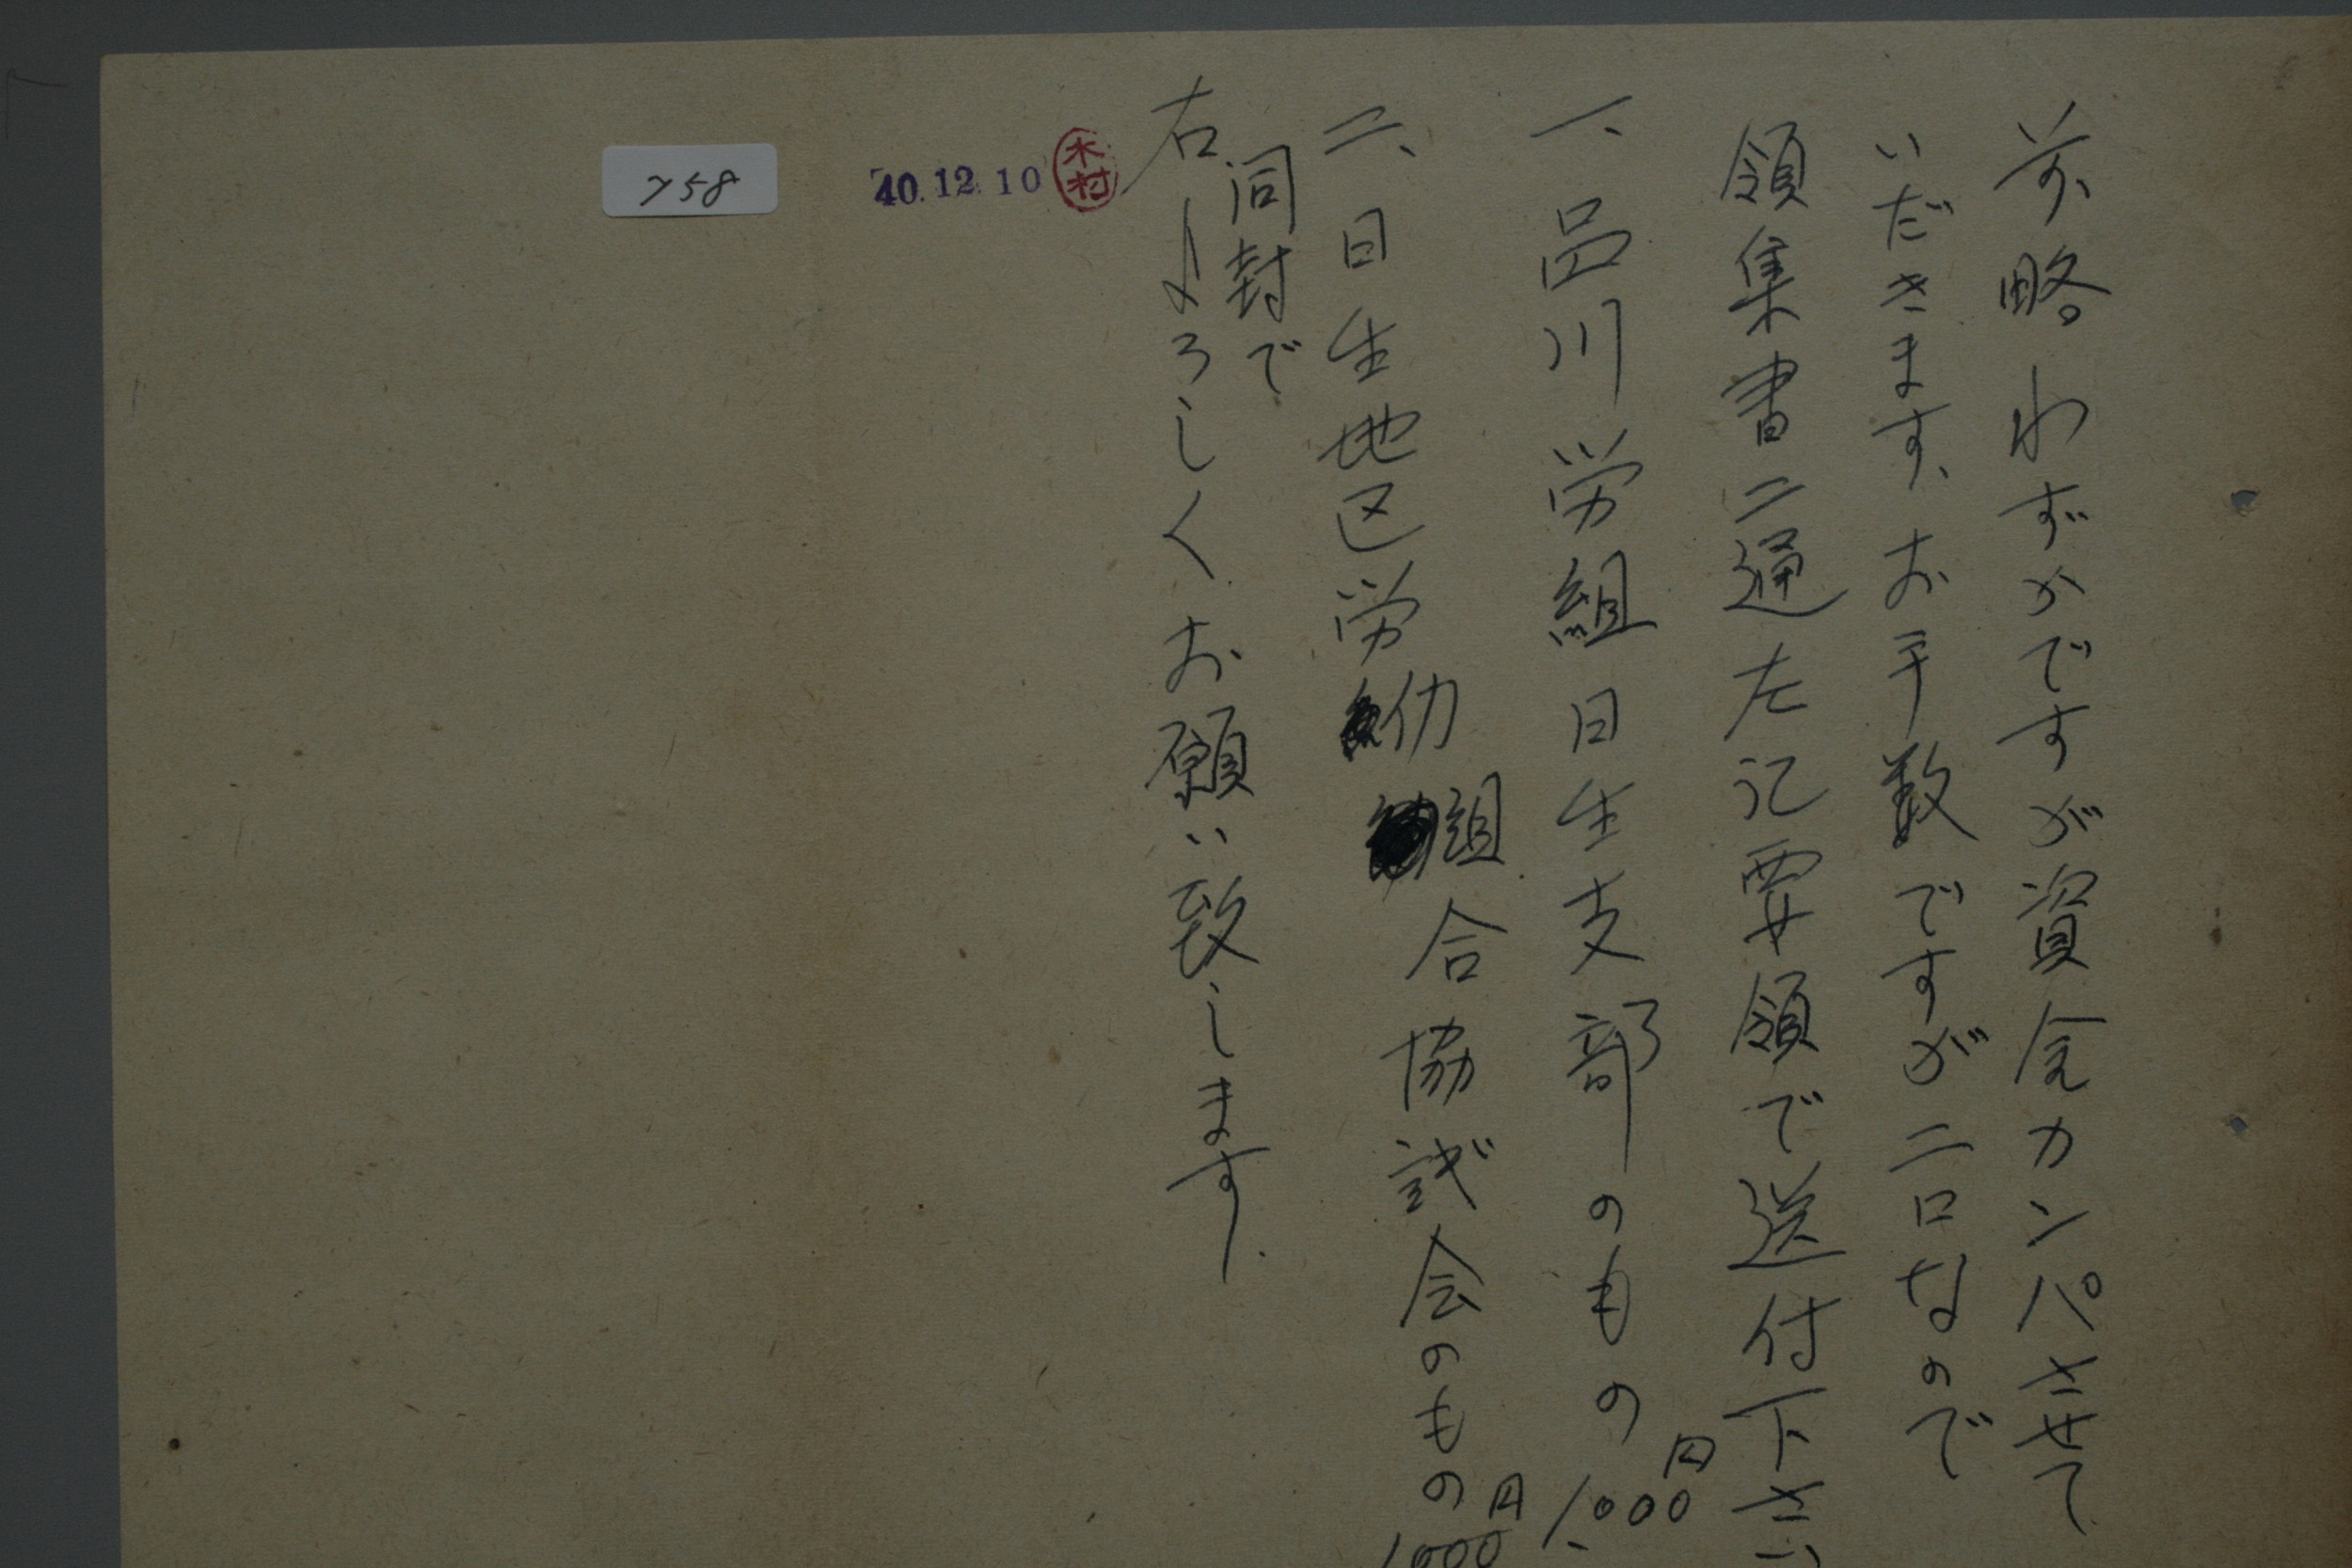 前略 わずかですが資金カンパさせて
いだきます、お手数ですが二口なので
領集書二通左記要領で送付下さい
一、品川労組日生支部のもの 1,000円
二、日生地区労仂組合協議会のもの 1000円
同封で
右よろしくお願い致します.
木村
40.12.10
758